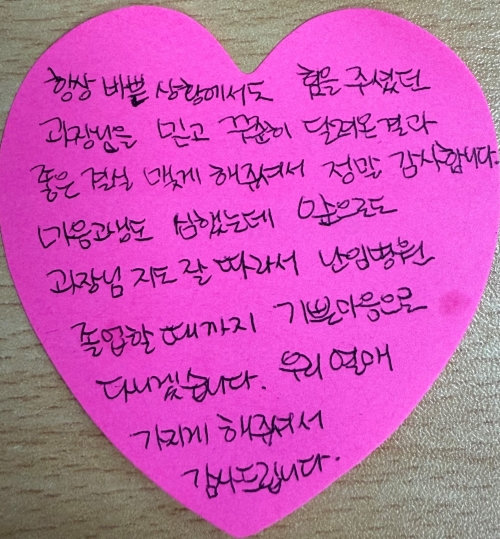 항상 바쁜 상황에서도 힘을 주셨던
과장님을 믿고 꾸준히 달려온 결과
좋은 결실 맺게 해주셔서 정말 감사합니다.
마음고생도 심했는데 앞으로도
과장님 지도 잘 따라서 난임병원
졸업할 때까지 기쁜마음으로
다니겠습니다. 우리 열매
가지게 해주셔서
감사드립니다.